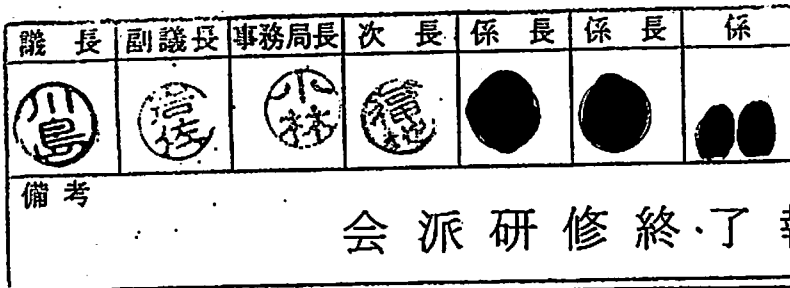 議長 副議長 事務局長 次長 係長 係長 係
川島 小林
備考
会派研修終了